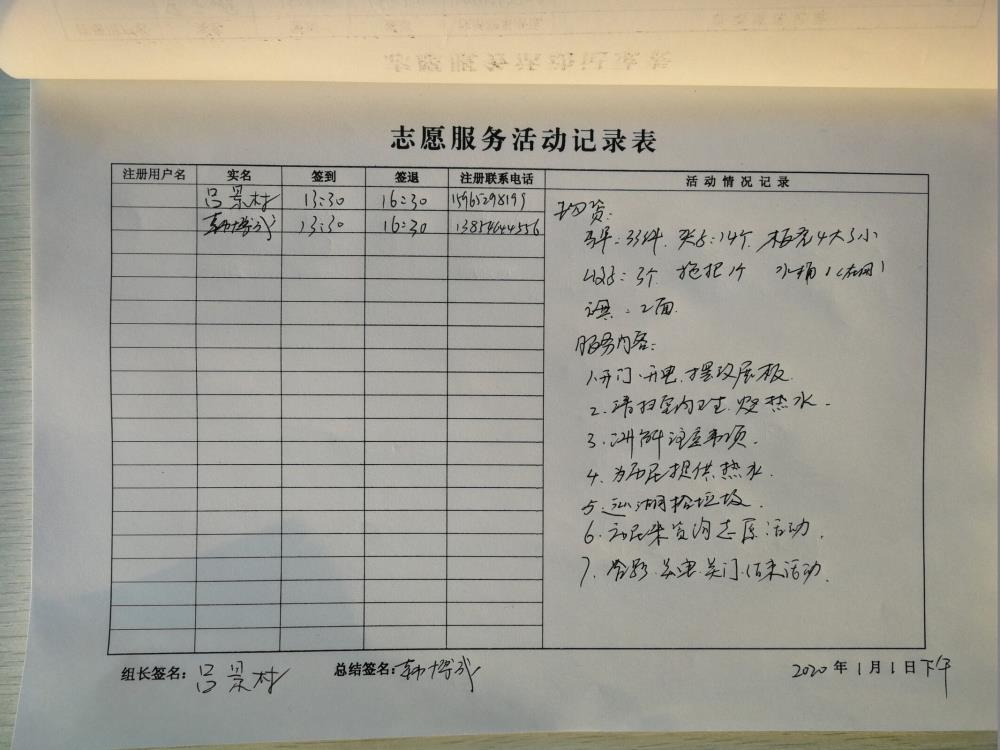 志愿服务活动记录表
注册用户名 实名 签到 签退 注册联系电话 活动情况记录
吕景村 13:30 16:30 15965298199
韩博武 13:30 16:30 13854644556
物资:
马甲:33件. 夹子:14个. 拖把1个 水桶1
旗:2面.
服务内容:
1.开门.开电.摆放展板.
2.清扫室内卫生.烧热水.
3.讲解注意事项.
4.为市民提供热水.
5.巡湖捡垃圾.
6.市民来咨询志愿活动.
7.合影.关电.关门.结束活动.
组长签名:吕景村 总结签名:韩博武 2020年1月1日下午